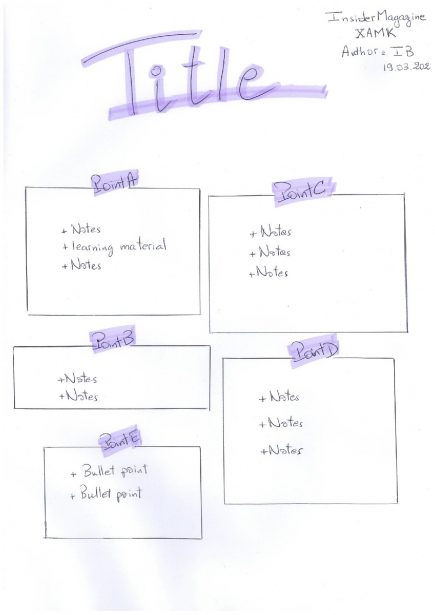 InsiderMagazine
XAMK
Author = IB
19.03.202
Title
Point A
+ Notes
+ learning material
+ Notes
Point C
+ Notes
+ Notes
+ Notes
Point B
+ Notes
+ Notes
Point D
+ Notes
+ Notes
+ Notes
Point E
+ Bullet point
+ Bullet point